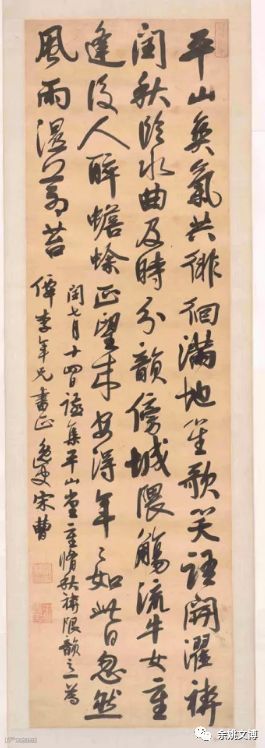 平山爽氣共徘徊滿地笙歌笑語開濯禊
閏秋臨水曲及時分韻傍城隈觴流牛女重
逢後人醉蟾蜍正望來安得年〻如此日忽然
風雨濕蒼苔
閏七月十四日讌集平山堂重脩秋禊限韻之一為
李年兄書正 逸史宋曹
余姚文博